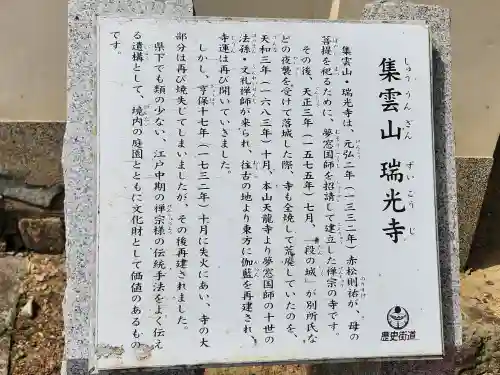 集雲山 瑞光寺
しゅう うん ざん ずい こう じ
集雲山・瑞光寺は、元弘二年(一三三二年)赤松則祐が、母の
菩提を祀るために、夢窓国師を招請して建立した禅宗の寺です。
その後、天正三年(一五七五年)七月、「段の城」が別所氏な
どの夜襲を受けて落城した際、寺も全焼して荒廃していたのを、
天和三年(一六八三年)十月、本山天龍寺より夢窓国師の十世の
法孫・文礼禅師が来られ、往古の地より東方に伽藍を再建され、
寺運は再び開いていきました。
しかし、享保十七年(一七三二年)十月に失火にあい、寺の大
部分は再び焼失してしまいましたが、その後再建されました。
県下でも類の少ない、江戸中期の禅宗様の伝統手法をよく伝え
る遺構として、境内の庭園とともに文化財として価値のあるもの
です。
歴史街道